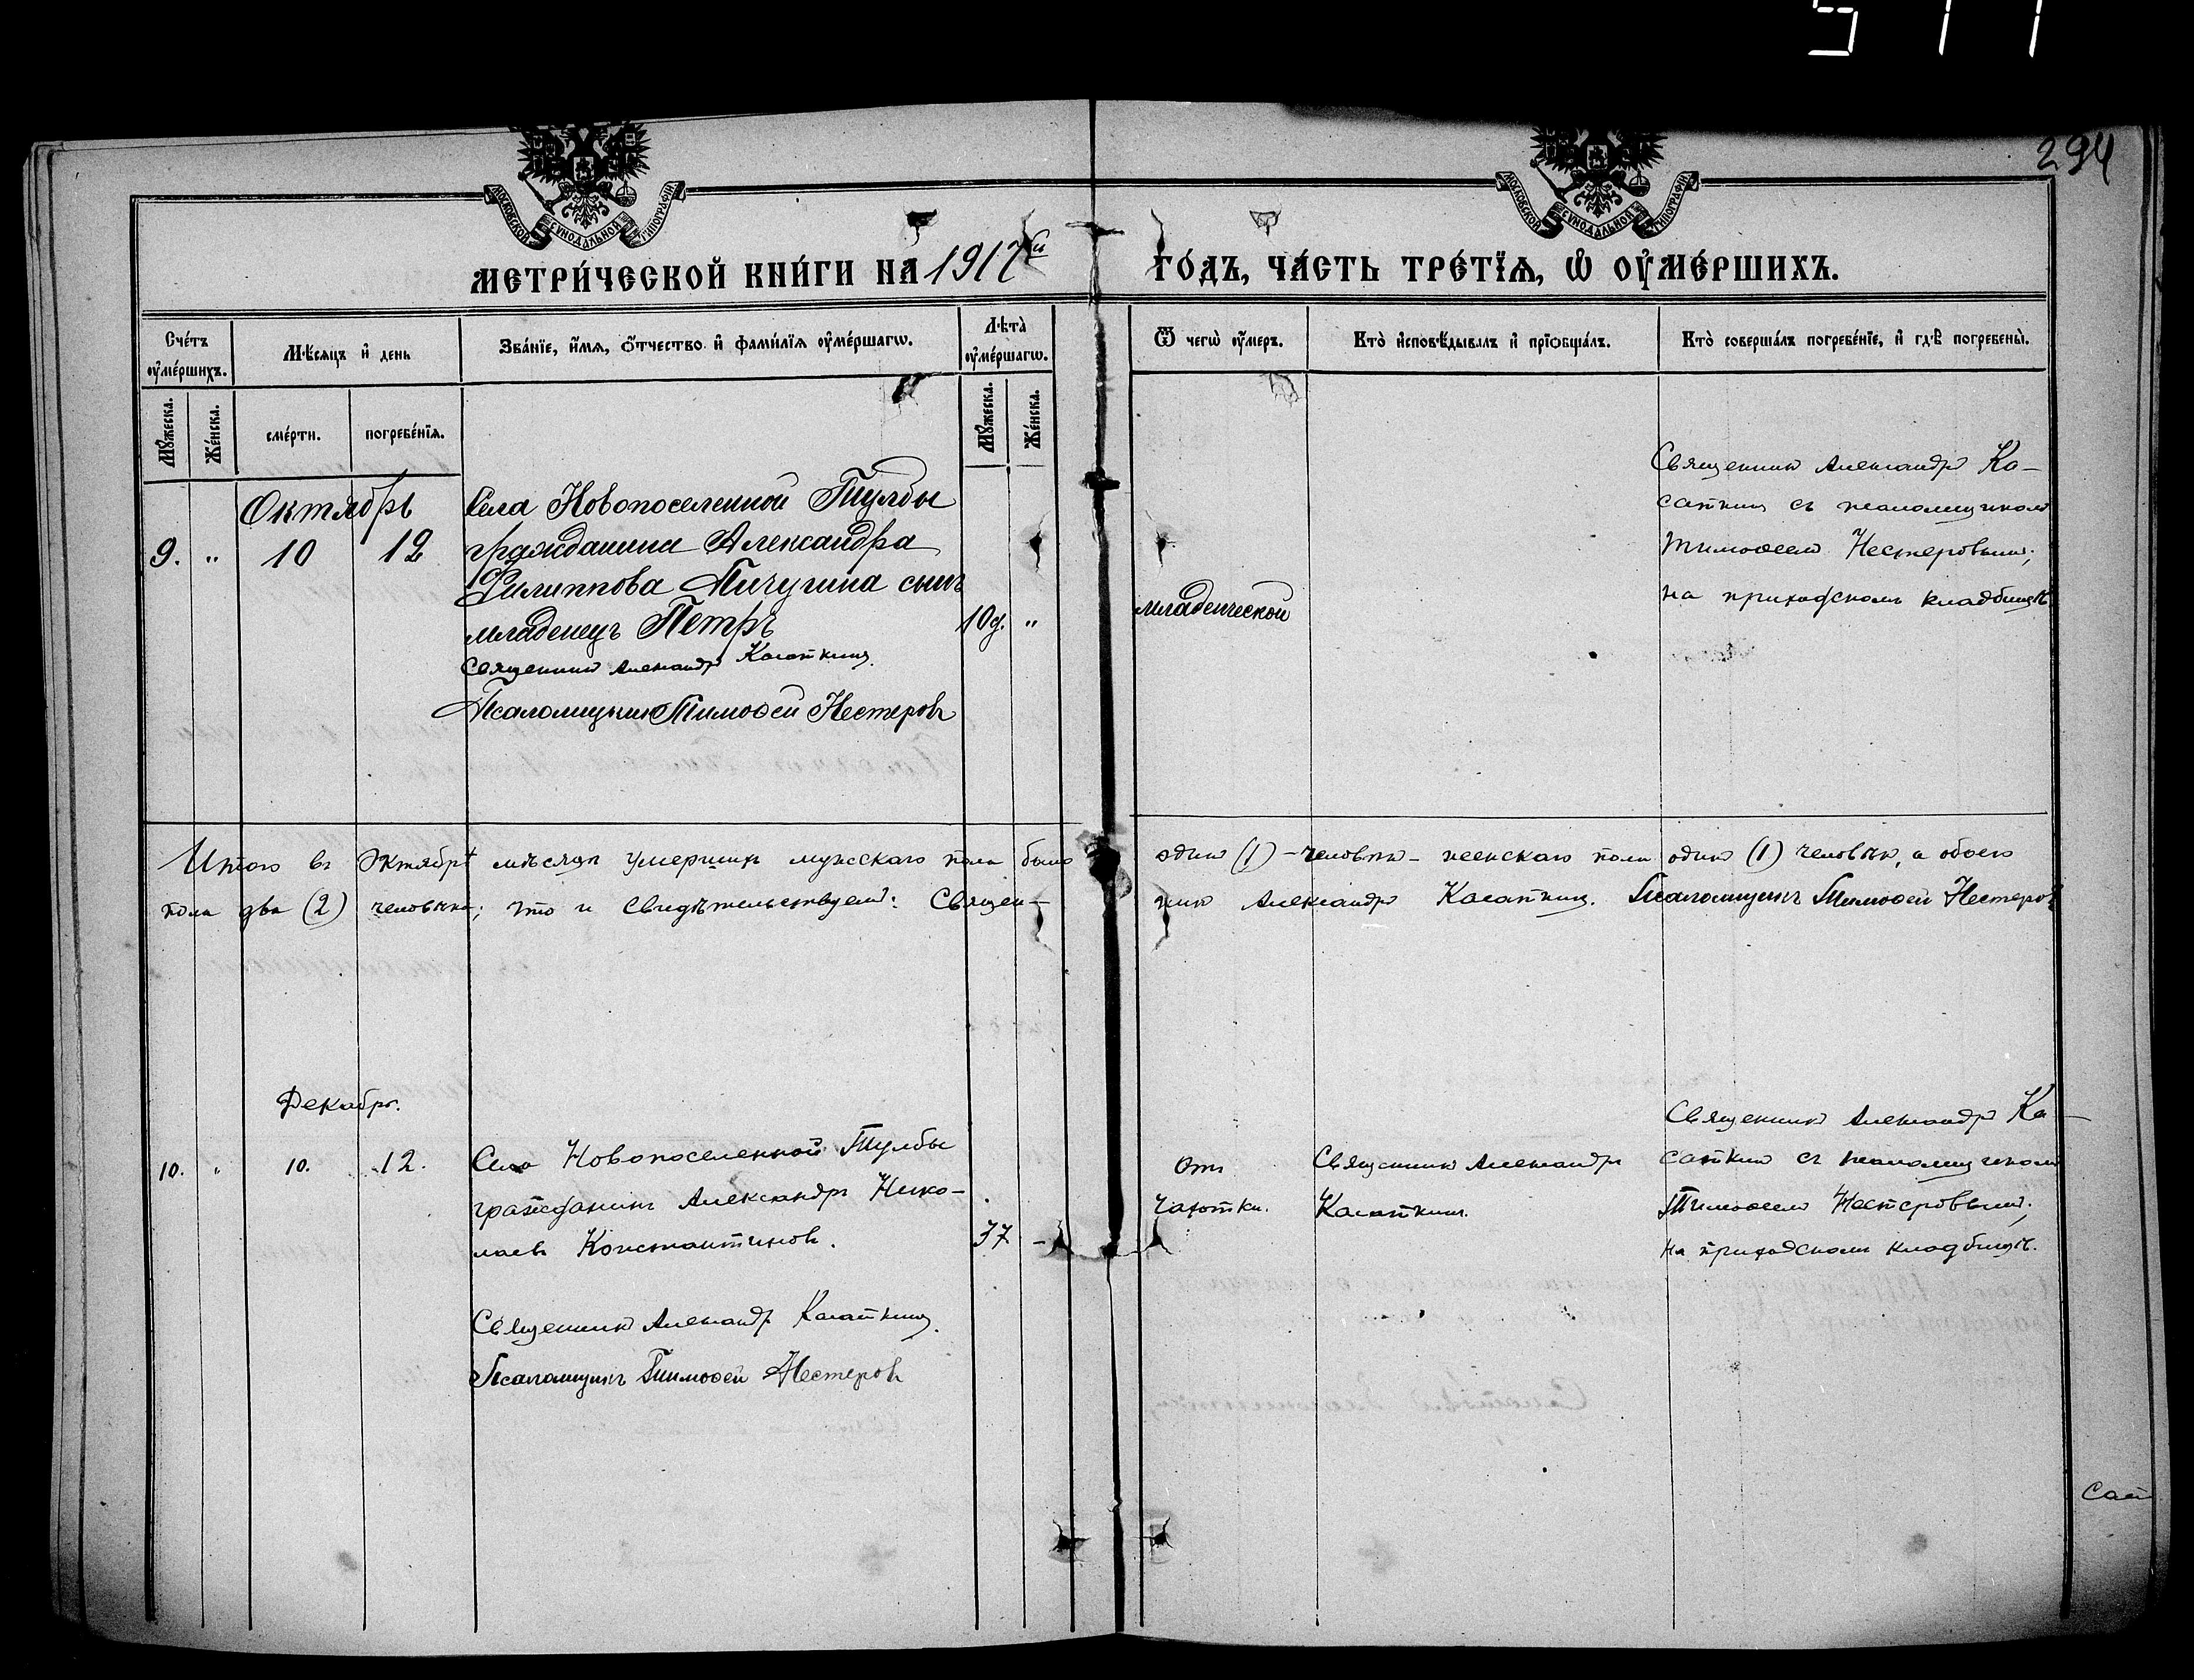 511
294
МОСКОВСКОЙ СѴНОДАЛЬНОЙ ТИПОГРАФІИ
МОСКОВСКОЙ СѴНОДАЛЬНОЙ ТИПОГРАФІИ
МЕТРИ́ЧЕСКОЙ КНИ́ГИ НА 1917й ГО́ДЪ, ЧА́СТЬ ТРЕ́ТЇѦ, Ѡ҆ ОУ҆МЕ́РШИХЪ.
Сче́тъ оу҆ме́ршихъ.
Мѣ́сяцъ и҆ день
Зва́нїе, и҆́мѧ, ѻ҆́тчество и҆ фами́лїѧ оу҆ме́ршагѡ.
Лѣта̀ оу҆ме́ршагѡ.
Ѿ чегѡ̀ оу҆́меръ.
Кто̀ и҆сповѣ́дывалъ и҆ прїѻбща́лъ.
Кто̀ соверша́лъ погребе́нїе, и҆ гдѣ̀ погребены̀.
Мꙋ́жеска.
Же́нска.
сме́рти.
погребе́нїѧ.
Мꙋ́жеска.
Же́нска.
Октябрь
9. „ 10 12
Села Новопоселенной Тулбы
гражданина Александра
Филиппова Пичугина сынъ
младенецъ Петръ
10д. „
Священникъ Александръ Касаткинъ.
Псаломщикъ Тимоѳей Нестеровъ
младенческой
Священникъ Александръ Ка-
саткинъ съ псаломщикомъ
Тимоѳеемъ Нестеровымъ;
на приходскомъ кладбищѣ
Итого въ Октябрѣ мѣсяцѣ умершихъ мужскаго пола было один (1) - человѣкъ - женскаго пола один (1) человѣкъ, а обоего
пола два (2) человѣка; что и свидѣтельствуемъ: Священ-никъ Александръ Касаткинъ. Псаломщикъ Тимоѳей Нестеровъ
Декабрь.
10. „ 10. 12.
Села Новопоселенной Тулбы
гражданинъ Александръ Нико-
лаевъ Константиновъ.
37 -
Священникъ Александръ Касаткинъ.
Псаломщикъ Тимоѳей Нестеровъ
Отъ
чахотки.
Священникъ Александръ
Касаткинъ.
Священникъ Александръ Ка-
саткинъ съ псаломщикомъ
Тимоѳеемъ Нестеровымъ;
на приходскомъ кладбищѣ.